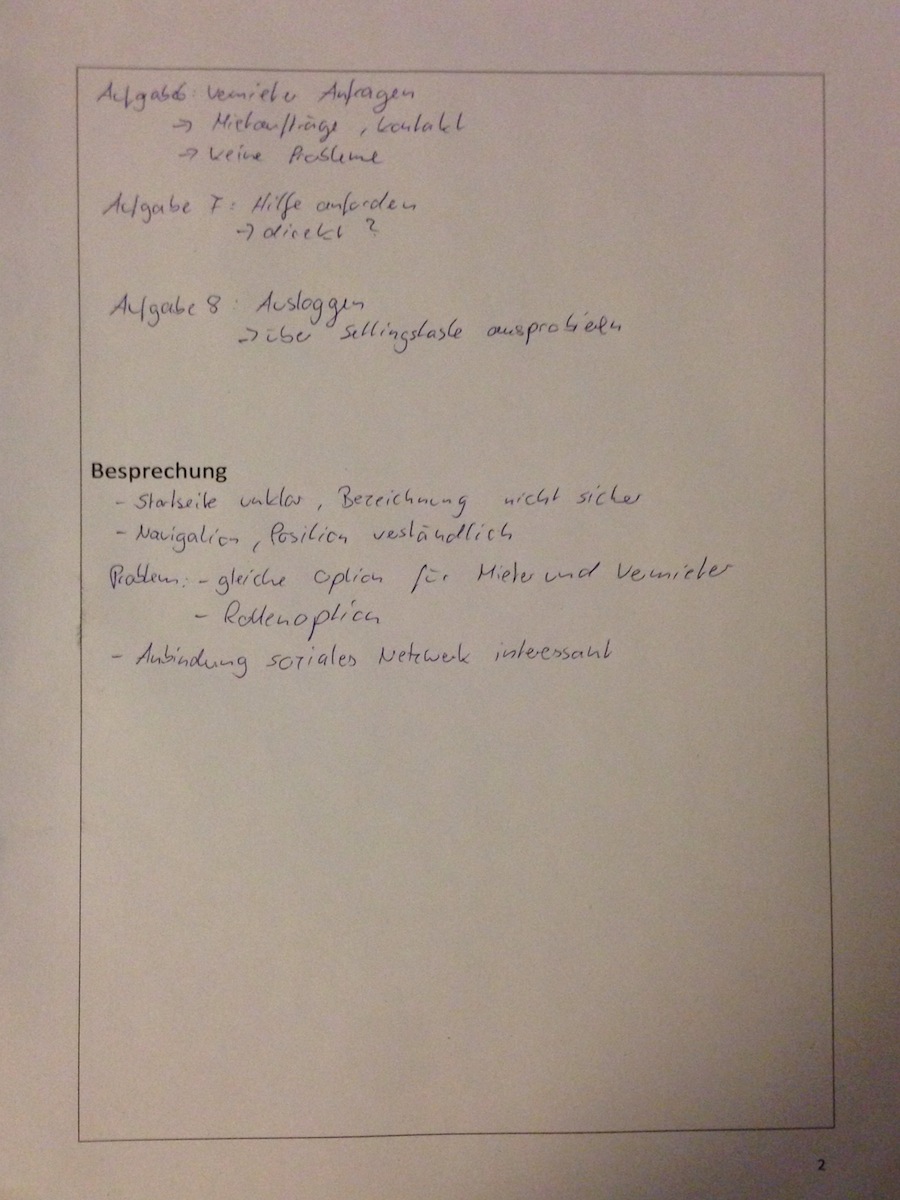 Aufgabe 6: Vermieter Anfragen
-> Mietaufträge, Kontakt
-> keine Probleme
Aufgabe 7: Hilfe anfordern
-> direkt ?
Aufgabe 8: Ausloggen
-> über Settingstaste ausprobieren
Besprechung
- Startseite unklar, Bezeichnung nicht sicher
- Navigation, Position veständlich
Problem: - gleiche Option für Mieter und Vermieter
- Rollenoption
- Anbindung soziales Netzwerk interessant
2